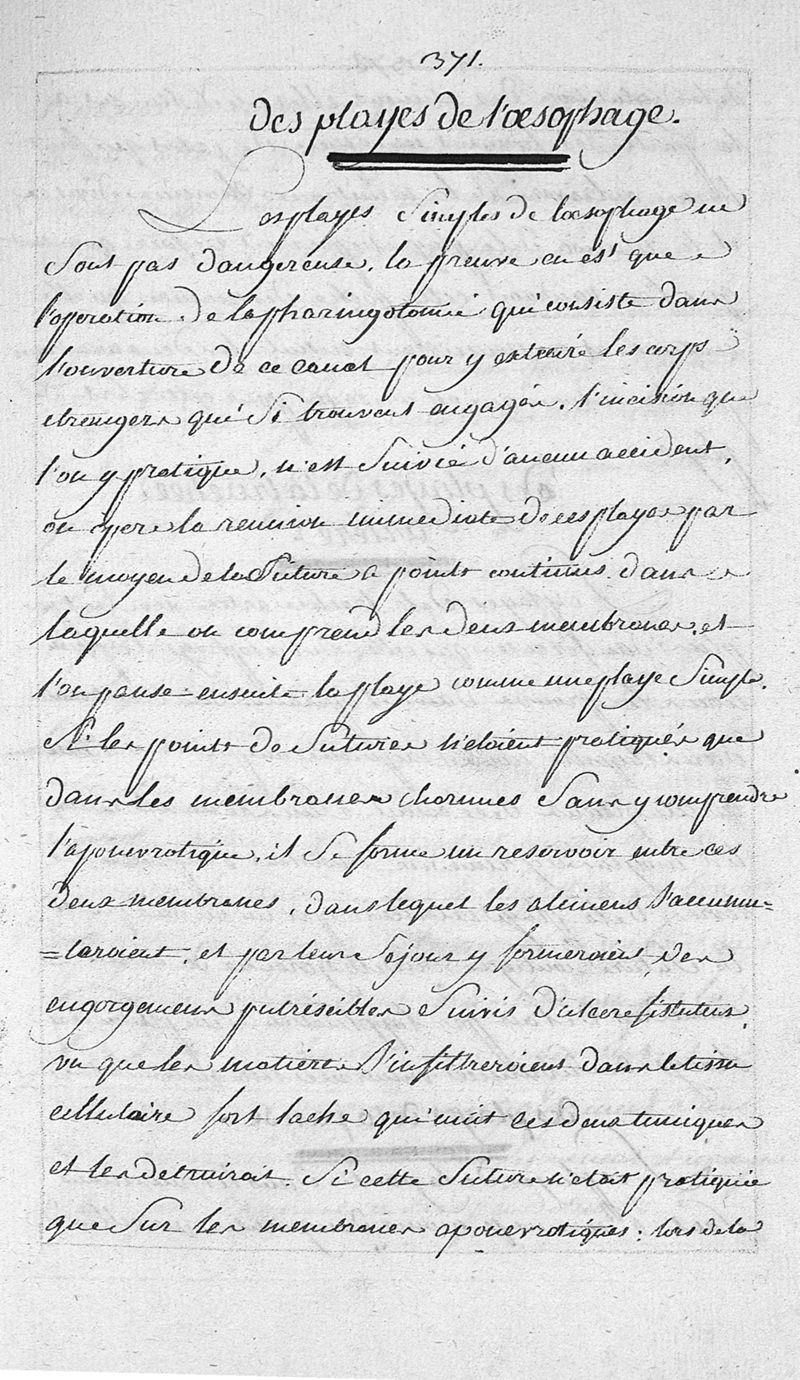 371.
des playes de l'œsophage.
Les playes Simples de l'œsophage ne
Sont pas dangereuse, la preuve en est que
l'operation de la pharingotomie qui consiste dans
l'ouverture de ce canal pour y extraire les corps
etrangers qui Si trouvent engagés. l'incision que
l'on y pratique, n'est Suivie d'aucun accident,
on opere la reunion immediate de ces playes par
le moyen de la Suture a points continus dans
laquelle on comprend les deux membranes, et
l'on panse ensuite la playe comme une playe Simple.
Si les points de Sutures n'etoient pratiqués que
dans les membranes charnues Sans y comprendre
l'aponevrotique, il Se forme un reservoir entre ces
deux membranes, dans lequel les alimens S'accumu=
=leroient, et par leur Sejour y formeroient des
engorgemens putrescibles Suivis d'ulcere fistuleux
vu que les matieres S'infiltreroient dans le tissu
cellulaire fort lache qui unit ces deux tuniques
et les detruirait. Si cette Suture n'etait pratiquée
que Sur les membranes aponevrotiques: lors de la